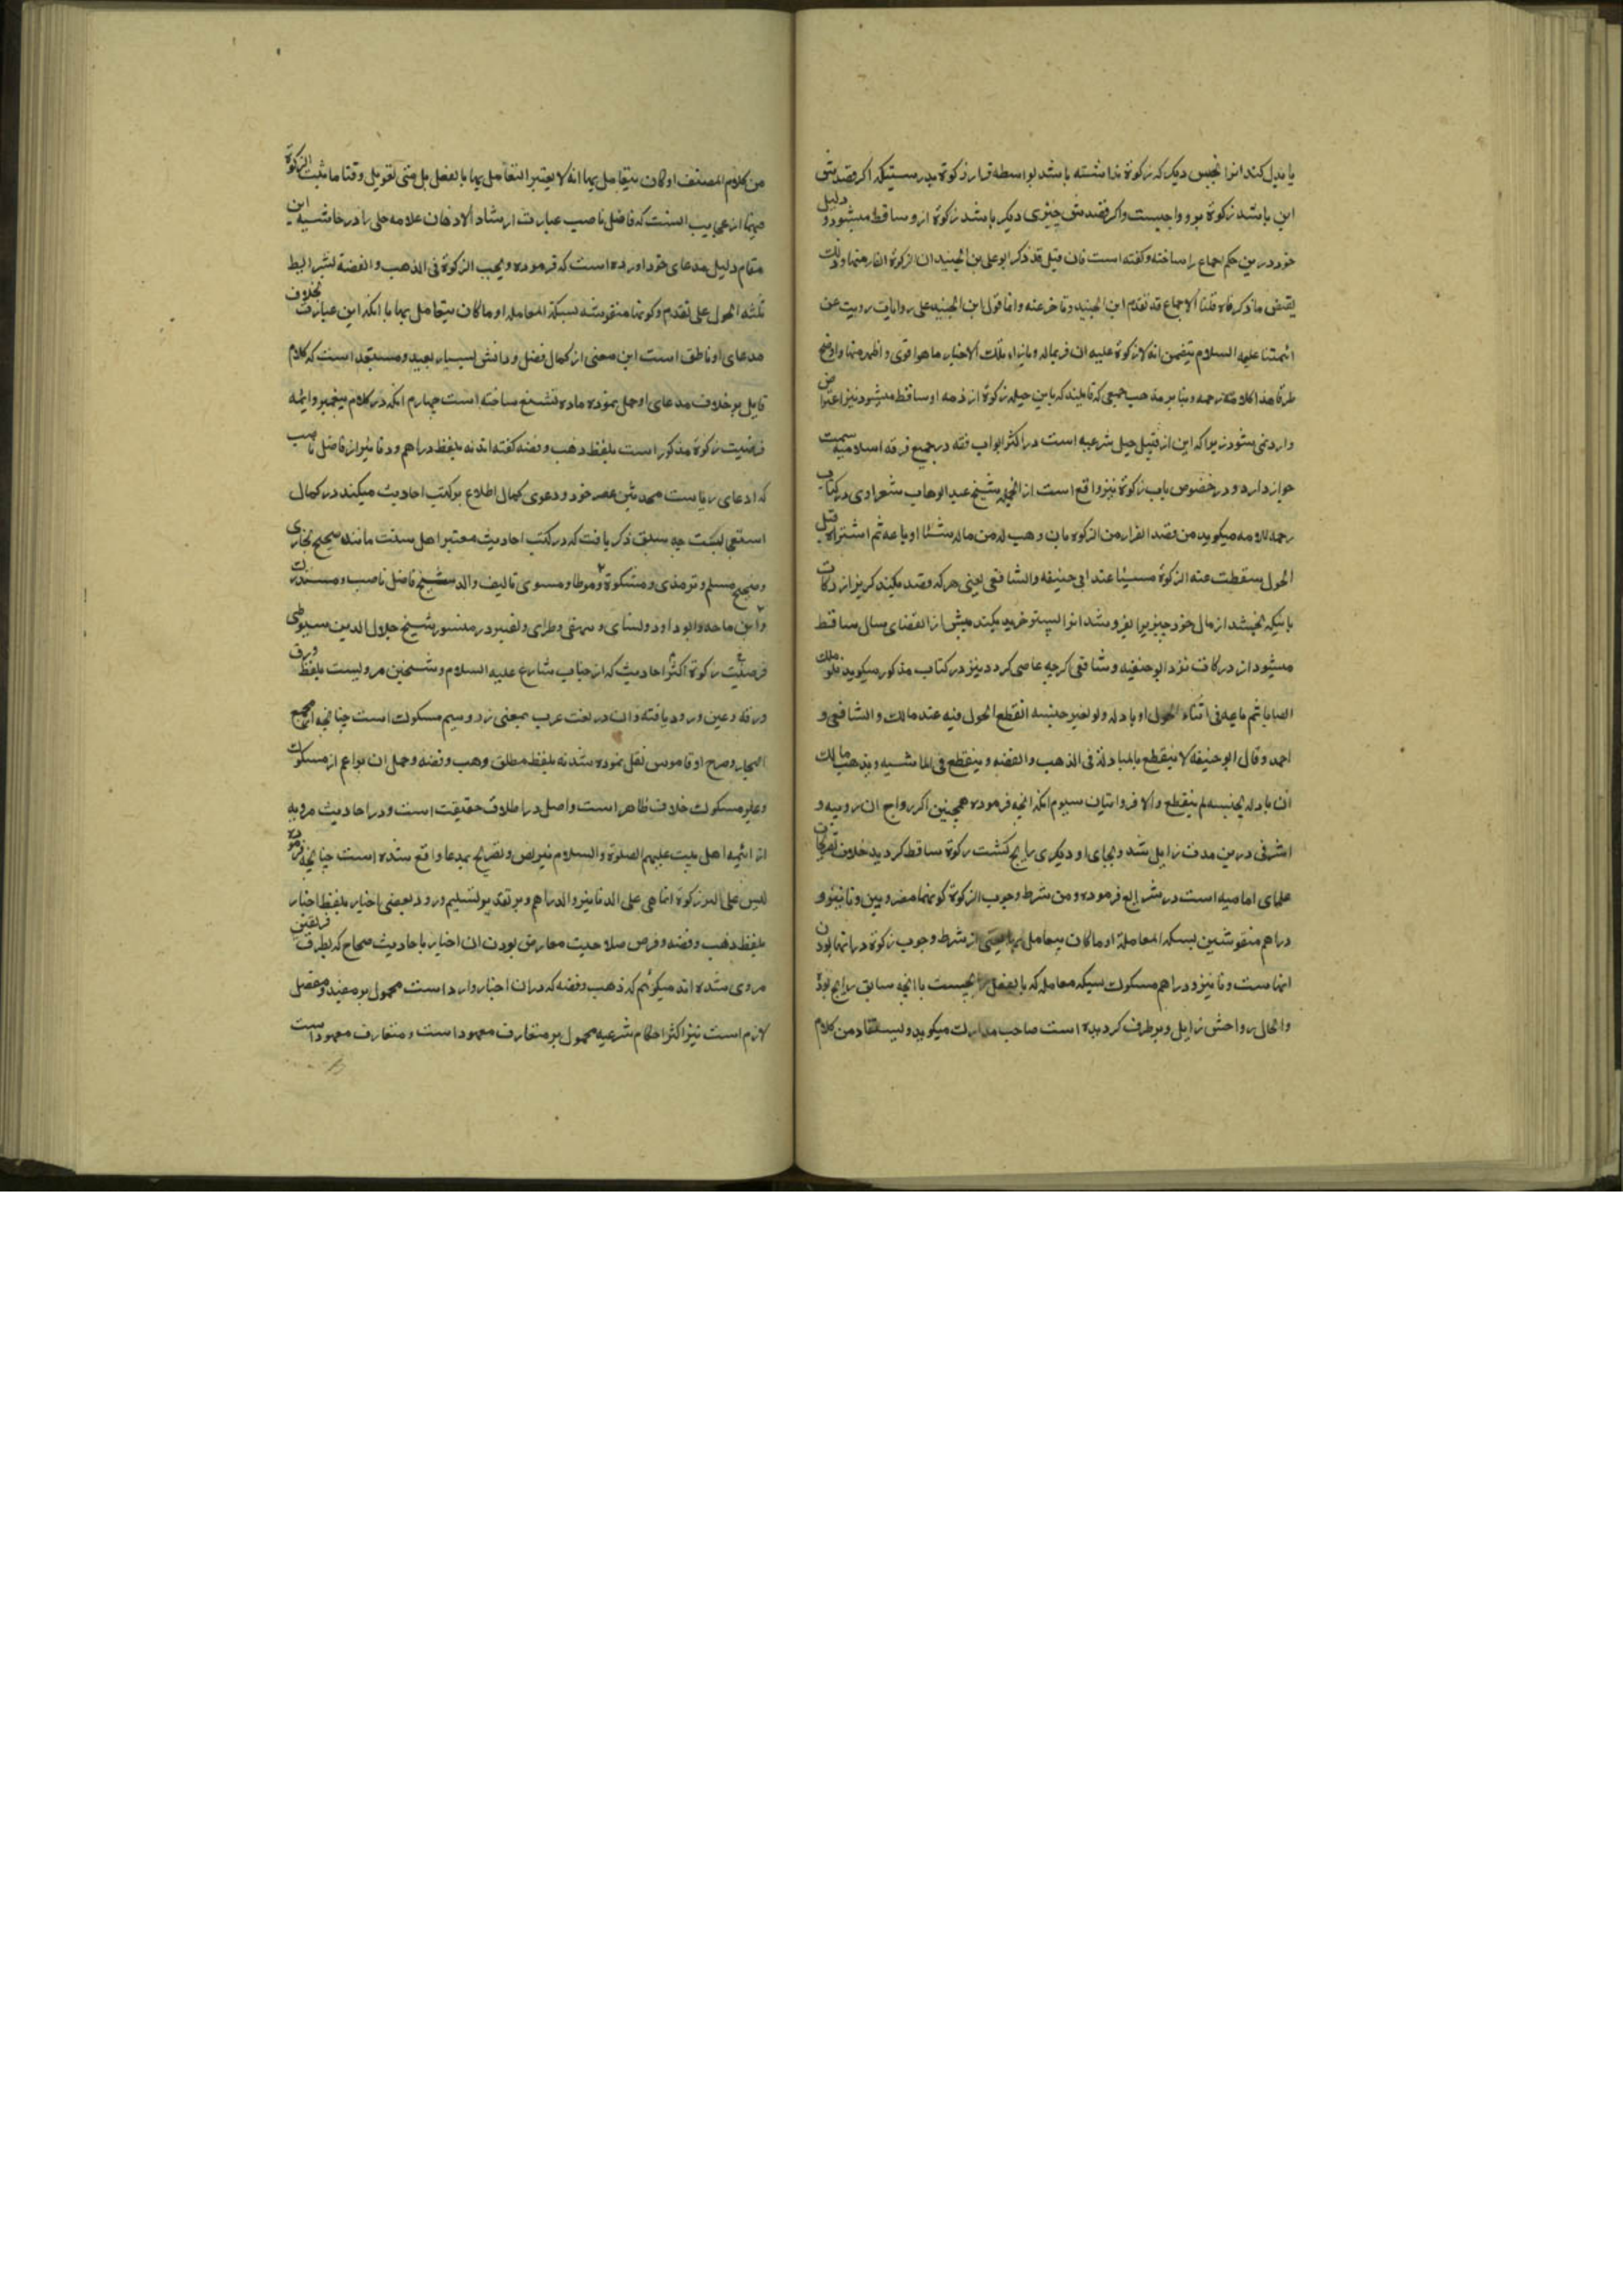 یا بدل کند انرا بجنس دیکر که زکوة نداشته باشد بواسطه فرار از زکوة بدرستیکه اکر قصدش
این باشد زکوة برو واجبست واکر قصدش چیزی دیکر باشد زکوة ازو ساقط میشود و دلیل
خود درین حکم اجماع را ساخته وکفته است فان قیل قد ذکر ابو علی بن الجنید ان الزکوة لا تلزم الفار منها وذلک
ینقض ما ذکرناه قلنا الاجماع قد تقدم ابن الجنید وتاخر عنه وانما عول ابن الجنید علی روایات رویت عن
ائمتنا علیه السلام یتضمن انه لا زکوة علیه ان فر بماله وبازاء تلک الاخبار ما هو اقوی و اظهر منها واوضح
طرقا هذا کلامه ترجمه وبنا بر مذهب جمعی که قایلند که باین حیله زکوة از ذمه او ساقط میشود نیز اعتراض
وارد نمی شود زیرا که این از قبیل حیل شرعیه است در اکثر ابواب فقه در جمیع فرقه اسلامیه سمت
جواز دارد و در خصوص باب زکوة نیز واقع است از انجمله شیخ عبد الوهاب شعراوی در کتاب
رحمه للامه میکوید من قصد الفرار من الزکوة بان وهب له من ماله شیئا او باعه ثم اشتراه قبل
الحول سقطت عنه الزکوة مسیئا عند ابی حنیفه والشافعی یعنی هر که قصد میکند کریز از زکات
باینکه بخشد از مال خود چیزیرا یا بفروشد انرا پستر خرید میکند پیش از انقضای سال ساقط
میشود از زکات نزد ابو حنیفه و شافعی کرچه عاصی کردد نیز در کتاب مذکور میکوید ملک
نصابا ثم باعه فی اثناء الحول او بادله ولو بغیر جنسه انقطع الحول فیه عند مالک والشافعی و
احمد وقال ابو حنیفه لا ینقطع بالمبادلة فی الذهب والفضه وینقطع فی الماشیه ومذهب مالک
ان بادله بجنسه لم ینقطع والا فروایتان سیوم انکه انچه فرموده همچنین اکر رواج ان روپیه و
اشرفی درین مدت زایل شد و بجای او دیکری رایج کشت زکوة ساقط کردید خلاف تصریحات
علمای امامیه است در شرایع فرموده ومن شرط وجوب الزکوة کونهما مضروبین دنانیر و
دراهم منقوشین بسکه المعاملة او ما کان یتعامل بهما یعنی از شرط وجوب زکوة در انها بودن
انهاست دنانیر و دراهم مسکوک بسکه معامله که بالفعل رایجست یا انچه سابق رایج بوده
والحال رواجش زایل وبرطرف کردیده است صاحب مدارک میکوید ویستفاد من کلام
من کلام المصنف او کان یتعامل بهما انه لا یعتبر التعامل بهما بالفعل بل متی تعومل وقتا ما ثبت الزکوة
فیهما از عجایب انست که فاضل ناصب عبارت ارشاد الاذهان علامه حلی را در حاشیه این
مقام دلیل مدعای خود اورده است که فرموده ویجب الزکوة فی الذهب والفضة بشرایط
ثلثه الحول علی تقدم وکونهما منقوشه بسکة المعامله او ما کان یتعامل بهما با انکه این عبارت بخلاف
مدعای او ناطق است این معنی از کمال فضل و دانش بسیار بعید و مستبعد است که کلام
قایل بر خلاف مدعای او حمل نموده ماده تشنیع ساخته است چهارم انکه در کلام پیغمبر و ائمه
فرضیت زکوة مذکور است بلفظ ذهب و فضه کفته اند نه بلفظ دراهم و دنانیر از فاضل ناصب
که ادعای ریاست محدثین عصر خود و دعوی کمال اطلاع بر کتب احادیث میکند در کمال
است چه سبق ذکر یافت که در کتب احادیث معتبر اهل سنت مانند صحیح بخاری
وصحیح مسلم و ترمذی و مشکوة و موطا و مسوی تالیف والد شیخ فاضل ناصب و مستدرک
وابن ماجه وابو داود ونسای و بیهقی و طبرانی وتفسیر در منثور شیخ جلال الدین سیوطی
فرضیت زکوة اکثر احادیث که از جناب شارع علیه السلام و شیخین مرویست بلفظ ورق
ورقه و عین ورود یافته و ان در لغت عرب بمعنی زر و سیم مسکوک است چنانچه از مجمع
البحار و صرح او قاموس نقل نموده شد نه بلفظ مطلق ذهب و فضه وحمل ان بر اعم از مسکوک
وغیر مسکوک خلاف ظاهر است واصل در اطلاق حقیقت است و در احادیث مرویه
از ائمه اهل بیت علیهم الصلوة والسلام تنصیص وتصریح بمدعا واقع شده است چنانچه فرموده
لیس علی التبر زکوة انما هی علی الدنانیر والدراهم وبر تقدیر تسلیم ورود بعضی اخبار بلفظ اخبار
بلفظ ذهب و فضه و فرض صلاحیت معارض بودن ان اخبار با احادیث صحاح که بطرق فریقین
مروی شده اند میکوئیم که ذهب و فضه که در ان اخبار وارد است محمول بر مقید و مفصل
لازم است نیز اکثر احکام شرعیه محمول بر متعارف معهود است و متعارف معهود است